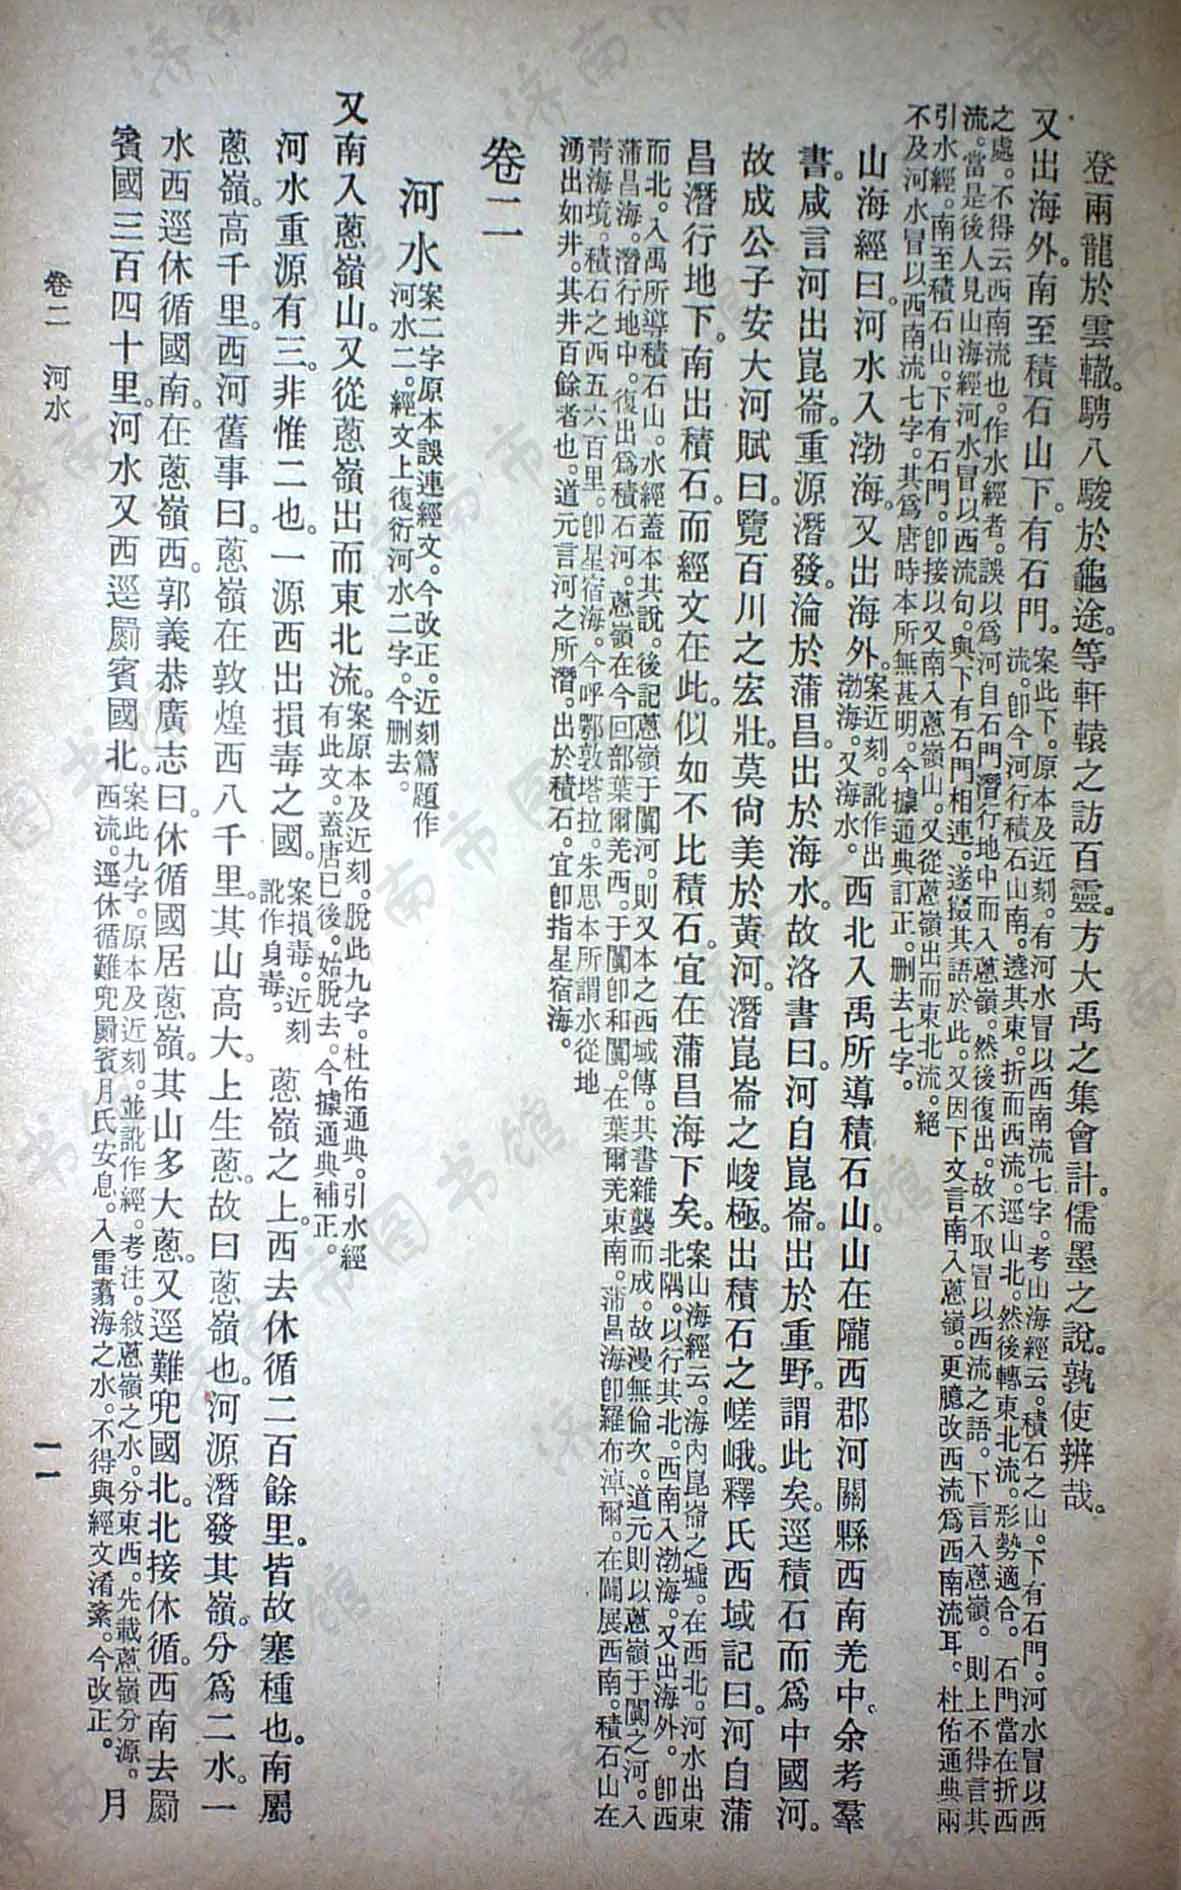 登兩龍於雲轍。騁八駿於龜途。等軒轅之訪百靈。方大禹之集會計。儒墨之說。孰使辨哉。
又出海外。南至積石山下。有石門。
案此下。原本及近刻。有河水冒以西南流七字。考山海經云。積石之山。下有石門。河水冒以西
流。卽今河行積石山南。遶其東。折而西流。逕山北。然後轉東北流。形勢適合。石門當在折西
之處。不得云西南流也。作水經者。誤以爲河自石門潛行地中而入蔥嶺。然後復出。故不取冒以西流之語。下言入蔥嶺。則上不得言其
流。當是後人見山海經河水冒以西流句。與下有石門相連。遂掇其語於此。又因下文言南入蔥嶺。更臆改西流爲西南流耳。杜佑通典兩
引水經。南至積石山。下有石門。卽接以又南入蔥嶺山。又從蔥嶺出而東北流。絕
不及河水冒以西南流七字。其爲唐時本所無甚明。今據通典訂正。删去七字。
山海經曰。河水入渤海。又出海外。
案近刻。訛作出
渤海。又海水。
西北入禹所導積石山。山在隴西郡河關縣西南羌中。余考羣
書。咸言河出崑崙。重源潛發。淪於蒲昌。出於海水。故洛書曰。河自崑崙。出於重野。謂此矣。逕積石而爲中國河。
故成公子安大河賦曰。覽百川之宏壯。莫尚美於黃河。潛崑崙之峻極。出積石之嵯峨。釋氏西域記曰。河自蒲
昌。潛行地下。南出積石。而經文在此。似如不比積石。宜在蒲昌海下矣。
案山海經云。海內崑崙之墟。在西北。河水出東
北隅。以行其北。西南入渤海。又出海外。卽西
而北。入禹所導積石山。水經蓋本其說。後記蔥嶺于闐河。則又本之西域傳。其書雜襲而成。故漫無倫次。道元則以蔥嶺于闐之河。入
蒲昌海。潛行地中。復出爲積石河。蔥嶺在今回部葉爾羌西。于闐卽和闐。在葉爾羌東南。蒲昌海卽羅布淖爾。在闢展西南。積石山在
青海境。積石之西五六百里。卽星宿海。今呼鄂敦塔拉。朱思本所謂水從地
湧出如井。其井百餘者也。道元言河之所潛。出於積石。宜卽指星宿海。
卷二
河水
案二字原本誤連經文。今改正。近刻篇題作
河水二。經文上復衍河水二字。今删去。
又南入蔥嶺山。又從蔥嶺出而東北流。
案原本及近刻。脫此九字。杜佑通典。引水經
有此文。蓋唐已後。始脫去。今據通典補正。
河水重源有三。非惟二也。一源西出損毒之國。
案損毒。近刻
訛作身毒。
蔥嶺之上。西去休循二百餘里。皆故塞種也。南屬
蔥嶺。高千里。西河舊事曰。蔥嶺在敦煌西八千里。其山高大。上生蔥。故曰蔥嶺也。河源潛發其嶺。分爲二水。一
水西逕休循國南。在蔥嶺西。郭義恭廣志曰。休循國居蔥嶺。其山多大蔥。又逕難兜國北。北接休循。西南去罽
賓國三百四十里。河水又西逕罽賓國北。
案此九字。原本及近刻。並訛作經。考注。敍蔥嶺之水。分東西。先載蔥嶺分源。
西流。逕休循難兜罽賓月氏安息。入雷翥海之水。不得與經文淆紊。今改正。
月
卷二　河水
一一